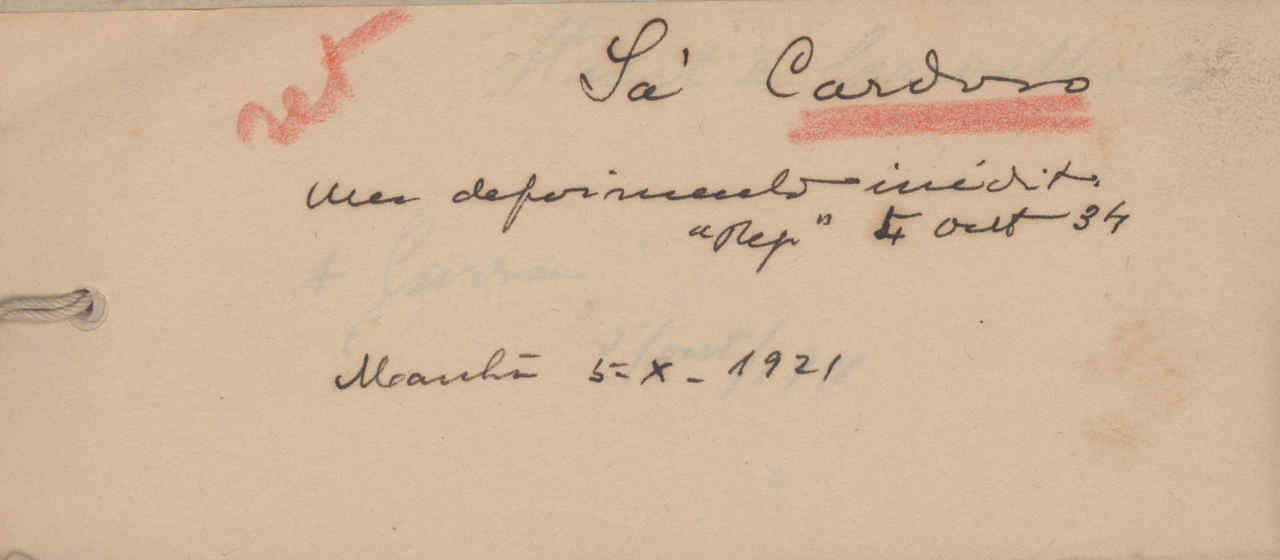 ret
Sá Cardoso
Um depoimento inédito
"Rep" 4 out 34
Manhã 5-X-1921